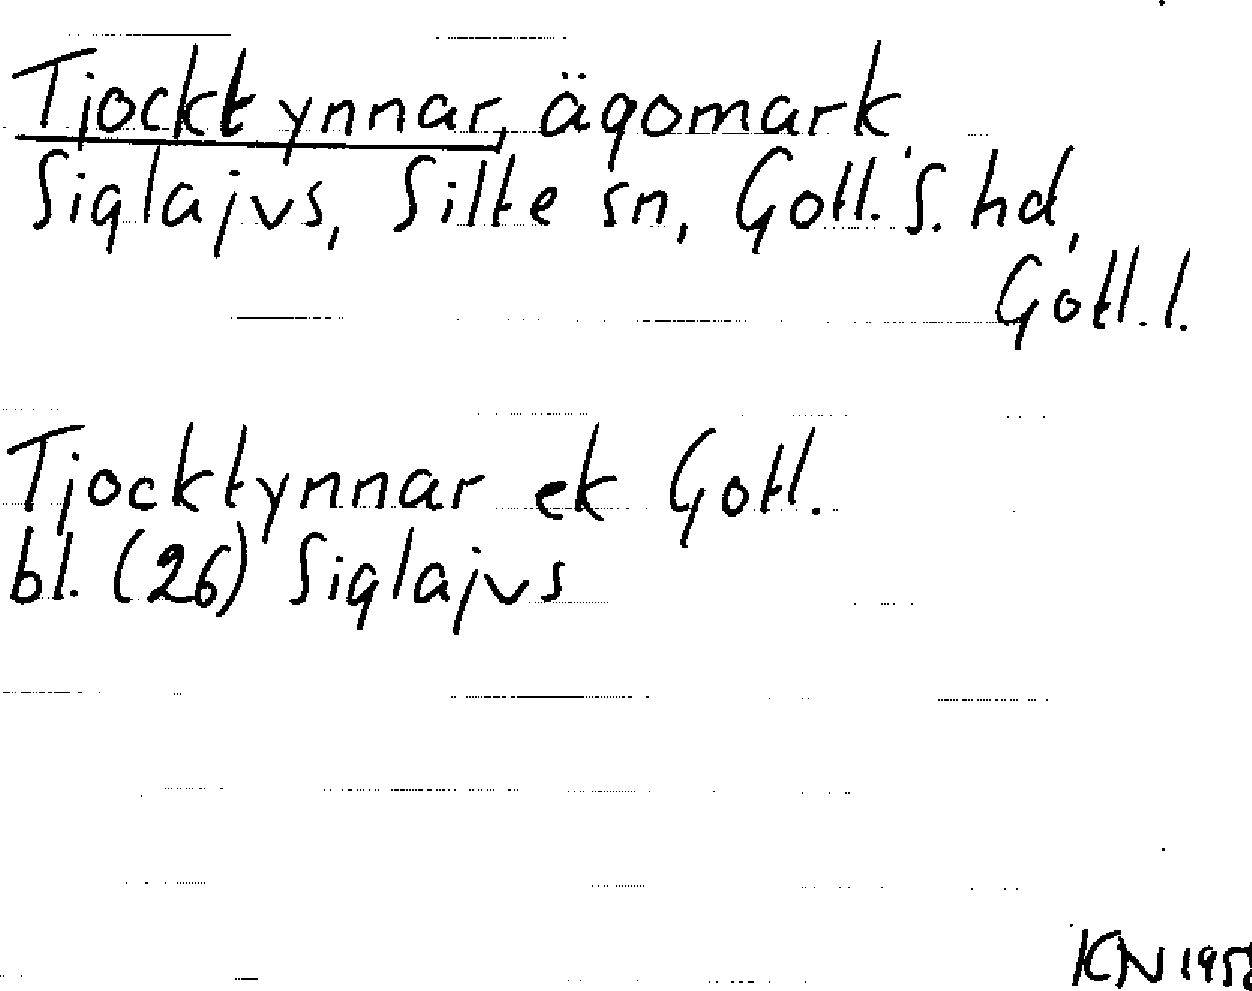 Tjocktynnar, ägomark
Siglajvs, Silte sn, Gotl. S. hd,
Gotl. l.
Tjocktynnar ek Gotl.
bl. (26) Siglajvs
KN